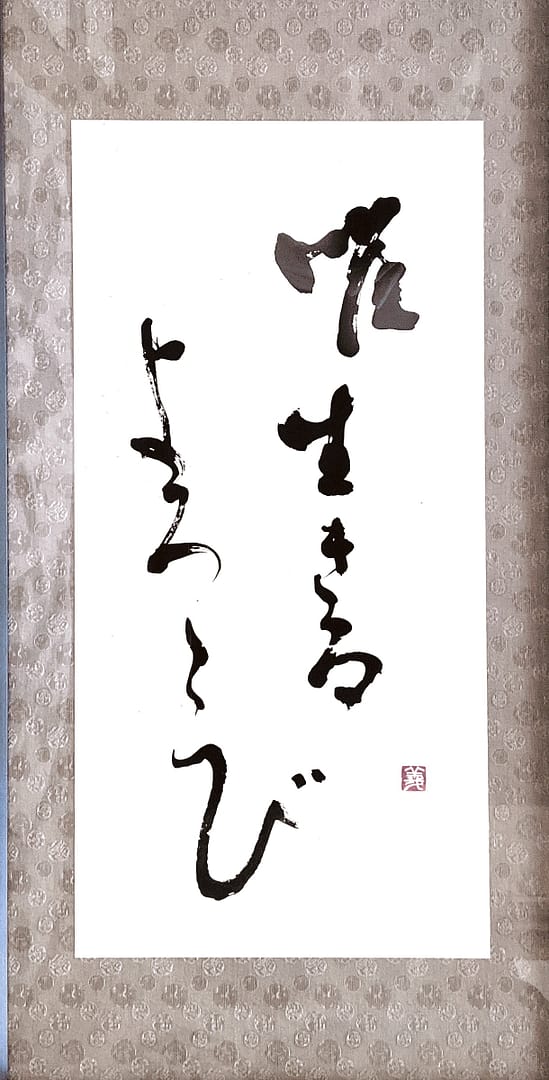 唯生きる
よろこび
義